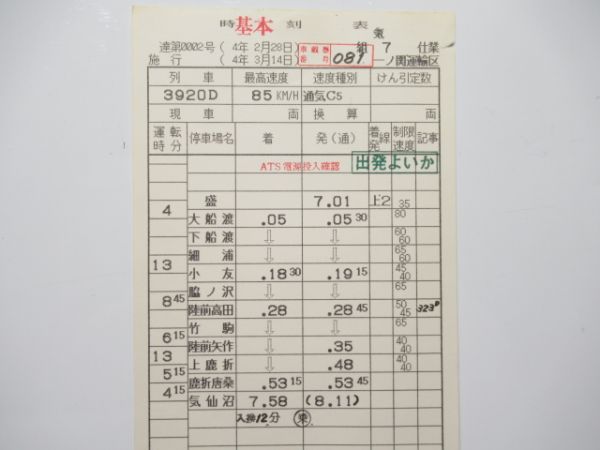 時 基本 刻 表
達第0002号 ( 4年 2月28日) 車載巻番号 081 組 7 仕業
施行 ( 4年 3月14日) 一ノ関運輸区
列車 最高速度 速度種別 けん引定数
3920D 85 KM/H 通気C5
現車 両 換算 両
運転時分 停車場名 着 発(通) 着発線 制限速度 記事
ATS電源投入確認 出発よいか
盛 7.01 上2 35
4
大船渡 .05 .05 30 80
下船渡 ⇩ ⇩ 60 60
細浦 ⇩ ⇩ 65
13
小友 .18 30 .19 15 45 40
脇ノ沢 ⇩ ⇩ 65
8 45
陸前高田 .28 .28 45 50 45 323D
竹駒 ⇩ ⇩ 65
6 15
陸前矢作 ⇩ .35 40 40
13
上鹿折 ⇩ .48 40 40
5 15
鹿折唐桑 .53 15 .53 45 65
4 15
気仙沼 7.58 (8.11)
入換12分 乗